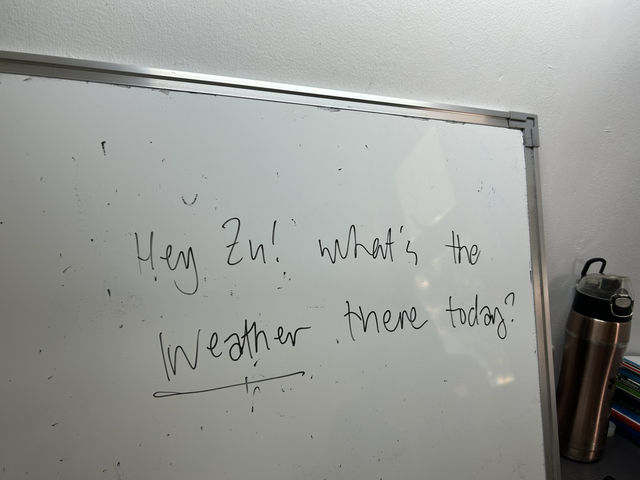 Hey Zu! what's the
Weather there today?